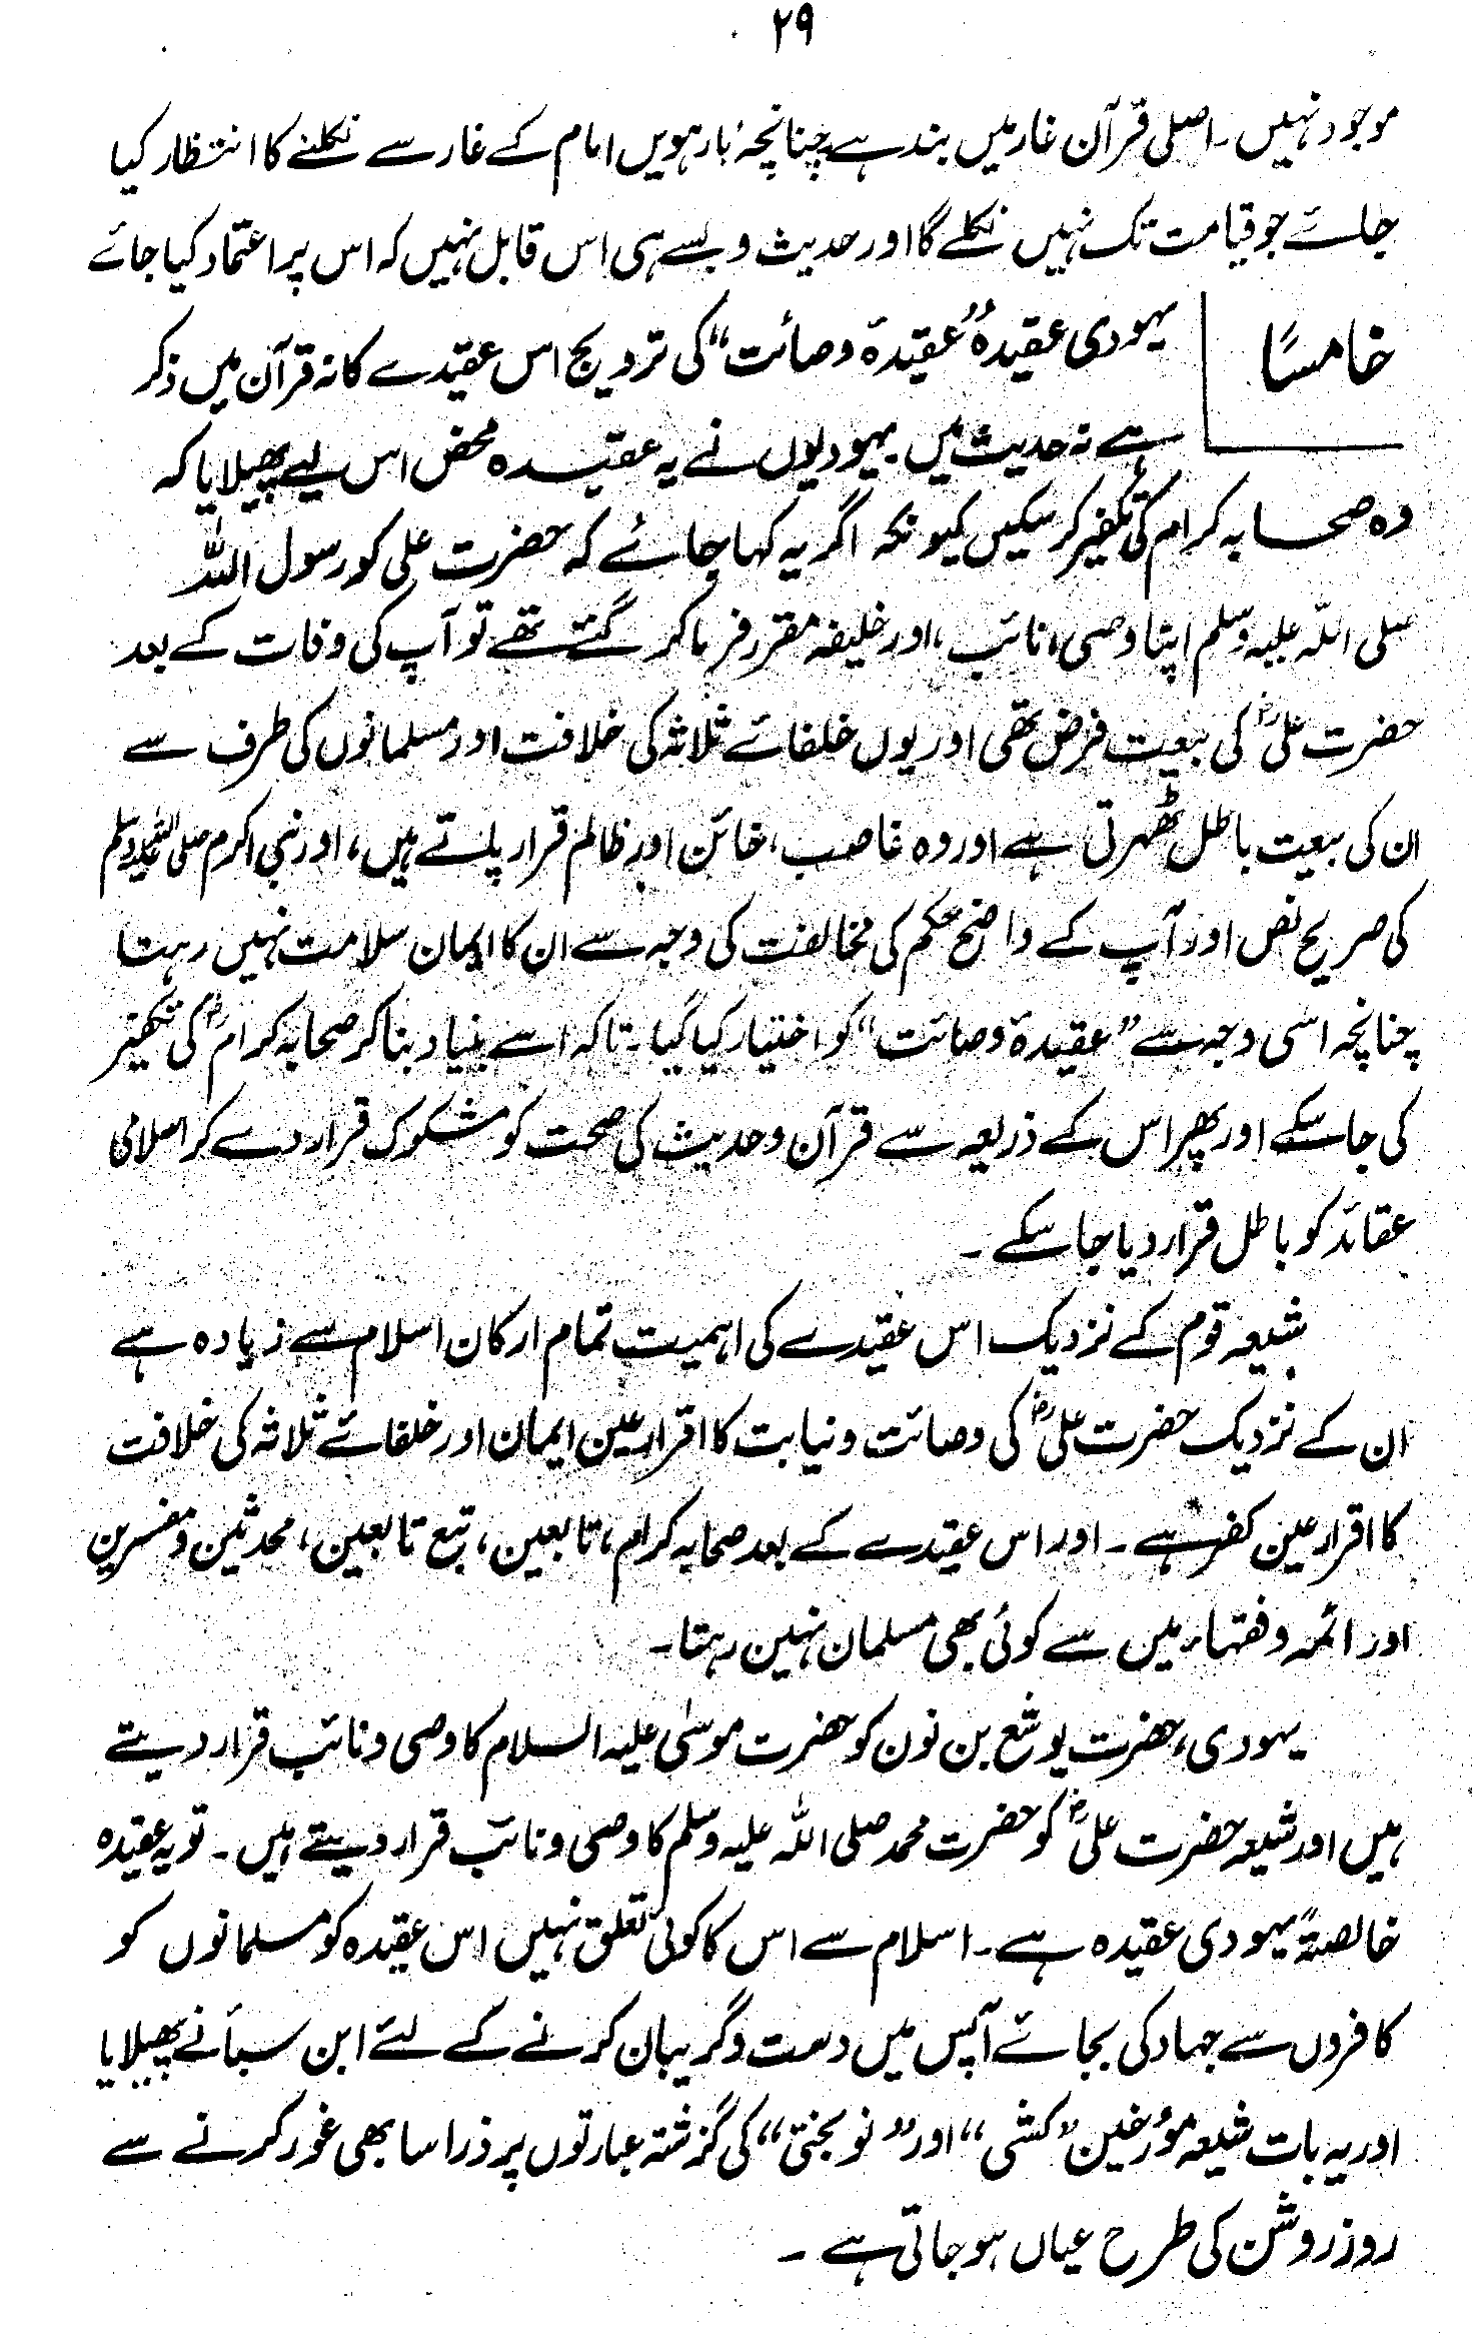 ۲۹
موجود نہیں ۔ اصلی قرآن غار میں بند ہے چنانچہ بارہویں امام کے غار سے نکلنے کا انتظار کیا
جائے جو قیامت تک نہیں نکلے گا اور حدیث ویسے ہی اس قابل نہیں کہ اس پر اعتماد کیا جائے
خامسًا
یہودی عقیدہ ”عقیدۃ وصائت“ کی ترویج اس عقیدے کا نہ قرآن میں ذکر
ہے نہ حدیث میں یہودیوں نے یہ عقیدہ محض اس لیے پھیلایا کہ
وہ صحابہ کرام کی تکفیر کر سکیں کیونکہ اگر یہ کہا جائے کہ حضرت علی کو رسول اللہ
صلی اللہ علیہ وسلم اپنا وصی، نائب، اور خلیفہ مقرر فرما کر گئے تھے تو آپ کی وفات کے بعد
حضرت علیؓ کی بیعت فرض تھی اور یوں خلفائے ثلاثہ کی خلافت اور مسلمانوں کی طرف سے
ان کی بیعت باطل ٹھہرتی ہے اور وہ غاصب، خائن اور ظالم قرار پاتے ہیں، اور نبی اکرم صلی اللہ علیہ وسلم
کی صریح نص اور آپ کے واضح حکم کی مخالفت کی وجہ سے ان کا ایمان سلامت نہیں رہتا
چنانچہ اسی وجہ سے ”عقیدۃ وصائت“ کو اختیار کیا گیا ۔ تاکہ اسے بنیاد بنا کر صحابہ کرامؓ کی تکفیر
کی جا سکے اور پھر اس کے ذریعہ سے قرآن و حدیث کی صحت کو مشکوک قرار دے کر اسلامی
عقائد کو باطل قرار دیا جا سکے ۔
شیعہ قوم کے نزدیک اس عقیدے کی اہمیت تمام ارکان اسلام سے زیادہ ہے
ان کے نزدیک حضرت علیؓ کی وصائت و نیابت کا اقرار عین ایمان اور خلفائے ثلاثہ کی خلافت
کا اقرار عین کفر ہے ۔ اور اس عقیدے کے بعد صحابہ کرام، تابعین، تبع تابعین، محدثین و مفسرین
اور ائمہ و فقہاء میں سے کوئی بھی مسلمان نہیں رہتا ۔
یہودی، حضرت یوشع بن نون کو حضرت موسیٰ علیہ السلام کا وصی و نائب قرار دیتے
ہیں اور شیعہ حضرت علیؓ کو حضرت محمد صلی اللہ علیہ وسلم کا وصی و نائب قرار دیتے ہیں ۔ تو یہ عقیدہ
خالصۃً یہودی عقیدہ ہے ۔ اسلام سے اس کا کوئی تعلق نہیں اس عقیدہ کو مسلمانوں کو
کافروں سے جہاد کی بجائے آپس میں دست و گریبان کرنے کے لئے ابن سبأ نے پھیلایا
اور یہ بات شیعہ مؤرخین ”کشی“ اور ”نوبختی“ کی گزشتہ عبارتوں پر ذرا سا بھی غور کرنے سے
روز روشن کی طرح عیاں ہو جاتی ہے ۔